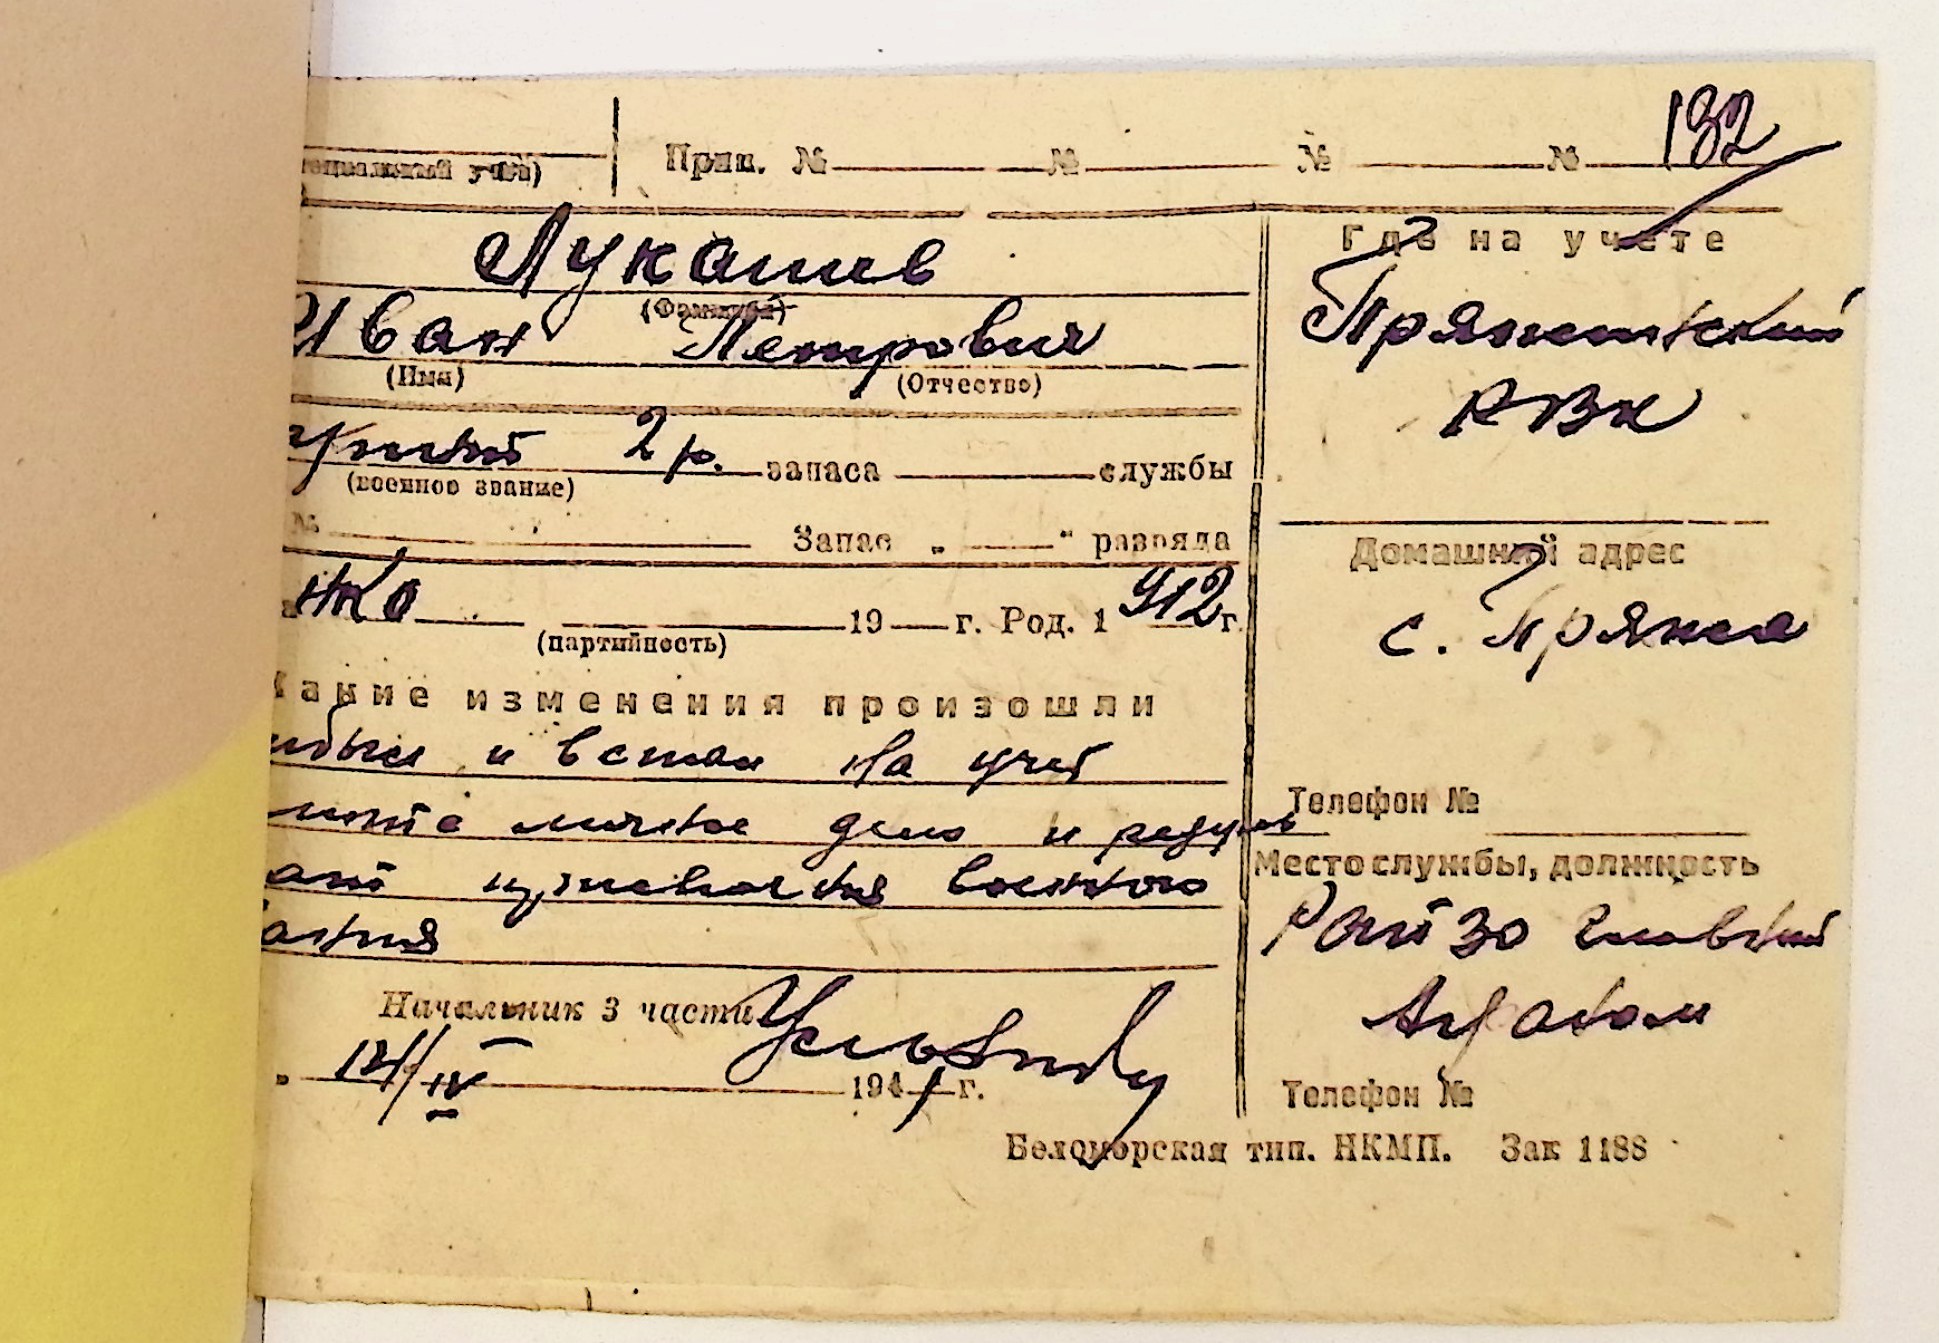 132
ециальный учёт) Прик. № № № №
Лукашев
(Фамилия)
Иван Петрович
(Имя) (Отчество)
2 р. запаса службы
(военное звание)
№ Запас „ “ разряда
19 г. Род. 1912 г.
(партийность)
Какие изменения произошли
и встал на учет
личное дело и
военного
Начальник 3 части
12/IV 1941 г.
Где на учете
Пряжинский
РВК
Домашний адрес
с. Пряжа
Телефон №
Место службы, должность
Райзо главный
Агроном
Телефон №
Беломорская тип. НКМП. Зак 1188